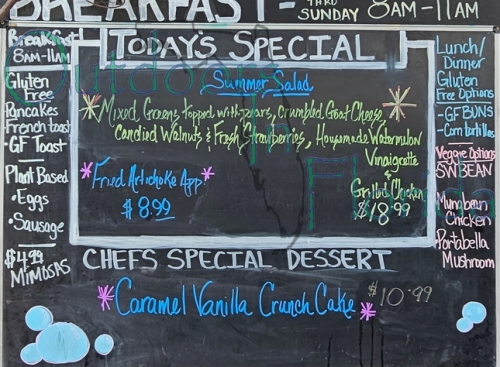 BREAKFAST - THRU SUNDAY 8AM-11AM
Breakfast
8AM-11AM
Gluten
Free
Pancakes
French toast
GF Toast
Plant Based
• Eggs
• Sausage
$4.99
MIMOSAS
TODAY'S SPECIAL
Summer Salad
Mixed Greens topped with pears, Crumbled Goat Cheese,
Candied Walnuts & Fresh Strawberries, Housemade Watermelon
Vinaigrette
& Grilled Chicken
$18.99
Fried Artichoke App
$8.99
CHEFS SPECIAL DESSERT
Caramel Vanilla Crunch Cake $10.99
Lunch/
Dinner
Gluten
Free Options
-GF BUNS
-Corn tortillas
Veggie Options
SW BEAN
Mung bean
Chicken
Portabella
Mushroom
Outdoors
in
Florida